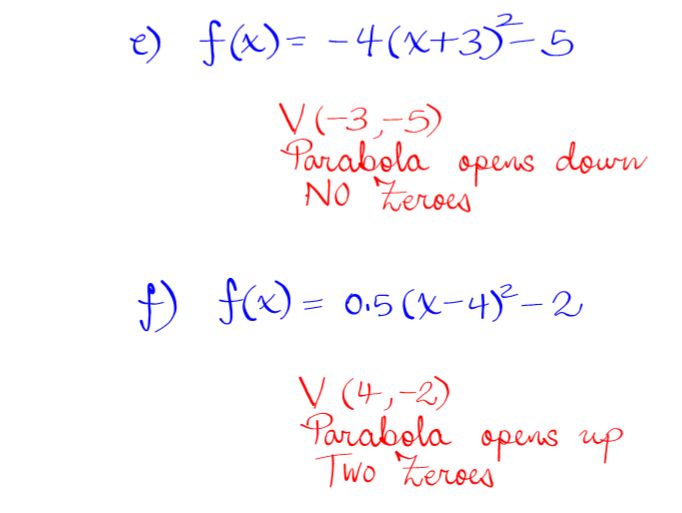 e) f(x) = -4(x+3)² - 5
V(-3,-5)
Parabola opens down
NO Zeroes
f) f(x) = 0.5(x-4)² - 2
V (4,-2)
Parabola opens up
Two Zeroes